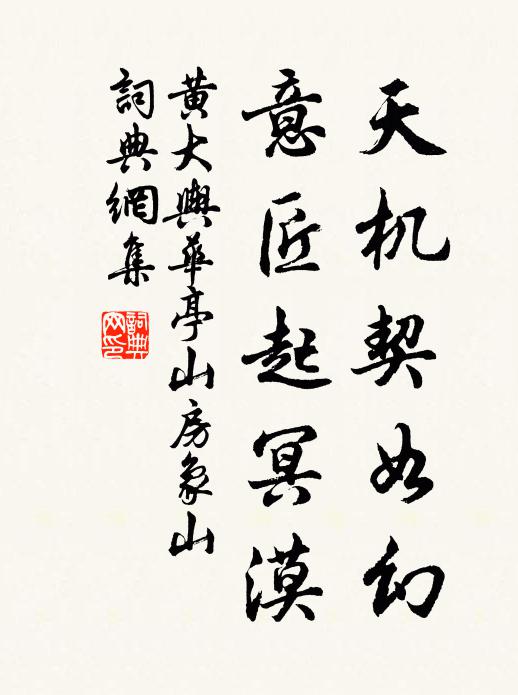 天机契如幻
意匠起冥漠
黄大舆华亭山房象山
詞典網集
詞典网印